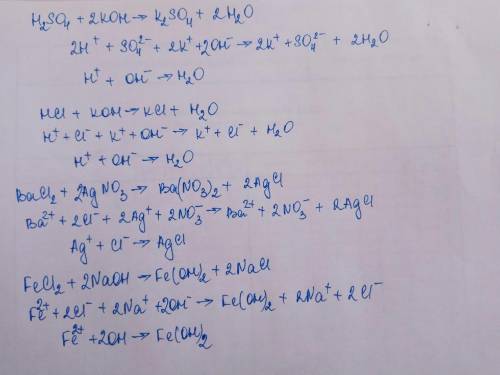 H₂SO₄ + 2KOH → K₂SO₄ + 2H₂O
2H⁺ + SO₄²⁻ + 2K⁺ + 2OH⁻ → 2K⁺ + SO₄²⁻ + 2H₂O
H⁺ + OH⁻ → H₂O
HCl + KOH → KCl + H₂O
H⁺ + Cl⁻ + K⁺ + OH⁻ → K⁺ + Cl⁻ + H₂O
H⁺ + OH⁻ → H₂O
BaCl₂ + 2AgNO₃ → Ba(NO₃)₂ + 2AgCl
Ba²⁺ + 2Cl⁻ + 2Ag⁺ + 2NO₃⁻ → Ba²⁺ + 2NO₃⁻ + 2AgCl
Ag⁺ + Cl⁻ → AgCl
FeCl₂ + 2NaOH → Fe(OH)₂ + 2NaCl
Fe²⁺ + 2Cl⁻ + 2Na⁺ + 2OH⁻ → Fe(OH)₂ + 2Na⁺ + 2Cl⁻
Fe²⁺ + 2OH → Fe(OH)₂